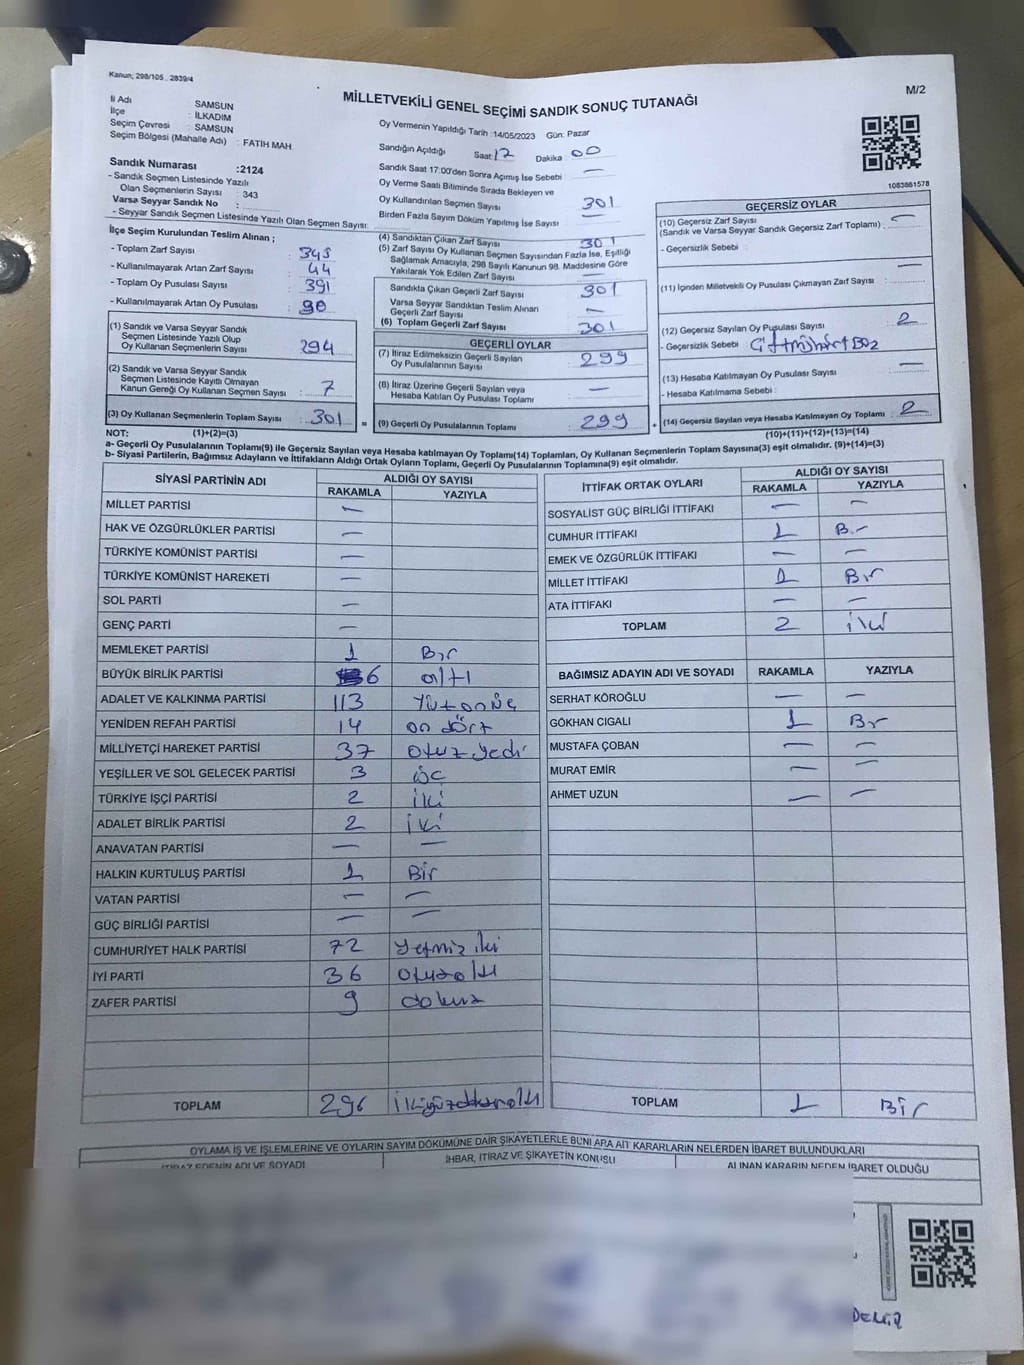 Kanun; 298/105 , 2839/4
MİLLETVEKİLİ GENEL SEÇİMİ SANDIK SONUÇ TUTANAĞI
M/2
İl Adı : SAMSUN
İlçe : İLKADIM
Seçim Çevresi : SAMSUN
Seçim Bölgesi (Mahalle Adı) : FATİH MAH
Sandık Numarası :2124
- Sandık Seçmen Listesinde Yazılı
Olan Seçmenlerin Sayısı : 343
Varsa Seyyar Sandık No :
- Seyyar Sandık Seçmen Listesinde Yazılı Olan Seçmen Sayısı:
İlçe Seçim Kurulundan Teslim Alınan ;
- Toplam Zarf Sayısı : 345
- Kullanılmayarak Artan Zarf Sayısı : 44
- Toplam Oy Pusulası Sayısı : 391
- Kullanılmayarak Artan Oy Pusulası : 90
(1) Sandık ve Varsa Seyyar Sandık
Seçmen Listesinde Yazılı Olup
Oy Kullanan Seçmenlerin Sayısı : 294
(2) Sandık ve Varsa Seyyar Sandık
Seçmen Listesinde Kayıtlı Olmayan
Kanun Gereği Oy Kullanan Seçmen Sayısı : 7
(3) Oy Kullanan Seçmenlerin Toplam Sayısı : 301
Oy Vermenin Yapıldığı Tarih :14/05/2023 Gün: Pazar
Sandığın Açıldığı Saat 17 Dakika 00
Sandık Saat 17:00'den Sonra Açımış İse Sebebi —
Oy Verme Saati Bitiminde Sırada Bekleyen ve
Oy Kullandırılan Seçmen Sayısı 301
Birden Fazla Sayım Döküm Yapılmış İse Sayısı —
(4) Sandıktan Çıkan Zarf Sayısı 301
(5) Zarf Sayısı Oy Kullanan Seçmen Sayısından Fazla İse, Eşitliği
Sağlamak Amacıyla, 298 Sayılı Kanunun 98. Maddesine Göre
Yakılarak Yok Edilen Zarf Sayısı —
Sandıkta Çıkan Geçerli Zarf Sayısı 301
Varsa Seyyar Sandıktan Teslim Alınan
Geçerli Zarf Sayısı : —
(6) Toplam Geçerli Zarf Sayısı 301
GEÇERLİ OYLAR
(7) İtiraz Edilmeksizin Geçerli Sayılan
Oy Pusulalarının Sayısı : 299
(8) İtiraz Üzerine Geçerli Sayılan veya
Hesaba Katılan Oy Pusulası Toplamı : —
= (9) Geçerli Oy Pusulalarının Toplamı : 299 +
1083861578
GEÇERSİZ OYLAR
(10) Geçersiz Zarf Sayısı
(Sandık ve Varsa Seyyar Sandık Geçersiz Zarf Toplamı) : —
- Geçersizlik Sebebi :
(11) İçinden Milletvekili Oy Pusulası Çıkmayan Zarf Sayısı : —
(12) Geçersiz Sayılan Oy Pusulası Sayısı : 2
- Geçersizlik Sebebi :
(13) Hesaba Katılmayan Oy Pusulası Sayısı : —
- Hesaba Katılmama Sebebi :
(14) Geçersiz Sayılan veya Hesaba Katılmayan Oy Toplamı : 2
NOT: (1)+(2)=(3) (10)+(11)+(12)+(13)=(14)
a- Geçerli Oy Pusulalarının Toplamı(9) ile Geçersiz Sayılan veya Hesaba katılmayan Oy Toplamı(14) Toplamları, Oy Kullanan Seçmenlerin Toplam Sayısına(3) eşit olmalıdır. (9)+(14)=(3)
b- Siyasi Partilerin, Bağımsız Adayların ve İttifakların Aldığı Ortak Oyların Toplamı, Geçerli Oy Pusulalarının Toplamına(9) eşit olmalıdır.
SİYASİ PARTİNİN ADI ALDIĞI OY SAYISI
RAKAMLA YAZIYLA
MİLLET PARTİSİ —
HAK VE ÖZGÜRLÜKLER PARTİSİ —
TÜRKİYE KOMÜNİST PARTİSİ —
TÜRKİYE KOMÜNİST HAREKETİ —
SOL PARTİ —
GENÇ PARTİ —
MEMLEKET PARTİSİ 1 Bir
BÜYÜK BİRLİK PARTİSİ 6 altı
ADALET VE KALKINMA PARTİSİ 113 Yüzonüç
YENİDEN REFAH PARTİSİ 14 on dört
MİLLİYETÇİ HAREKET PARTİSİ 37 Otuz yedi
YEŞİLLER VE SOL GELECEK PARTİSİ 3 üç
TÜRKİYE İŞÇİ PARTİSİ 2 iki
ADALET BİRLİK PARTİSİ 2 iki
ANAVATAN PARTİSİ — —
HALKIN KURTULUŞ PARTİSİ 1 Bir
VATAN PARTİSİ — —
GÜÇ BİRLİĞİ PARTİSİ — —
CUMHURİYET HALK PARTİSİ 72 Yetmiz iki
İYİ PARTİ 36 Otuzaltı
ZAFER PARTİSİ 9 dokuz
TOPLAM 296 ikiyüzdoksanaltı
İTTİFAK ORTAK OYLARI ALDIĞI OY SAYISI
RAKAMLA YAZIYLA
SOSYALIST GÜÇ BİRLİĞİ İTTİFAKI — —
CUMHUR İTTİFAKI 1 Bir
EMEK VE ÖZGÜRLÜK İTTİFAKI — —
MİLLET İTTİFAKI 1 Bir
ATA İTTİFAKI — —
TOPLAM 2 iki
BAĞIMSIZ ADAYIN ADI VE SOYADI RAKAMLA YAZIYLA
SERHAT KÖROĞLU — —
GÖKHAN CIGALI 1 Bir
MUSTAFA ÇOBAN — —
MURAT EMİR — —
AHMET UZUN — —
TOPLAM 1 Bir
OYLAMA İŞ VE İŞLEMLERİNE VE OYLARIN SAYIM DÖKÜMÜNE DAİR ŞİKAYETLERLE BUNLARA AİT KARARLARIN NELERDEN İBARET BULUNDUKLARI
İTİRAZ EDENİN ADI VE SOYADI İHBAR, İTİRAZ VE ŞİKAYETİN KONUSU ALINAN KARARIN NEDEN İBARET OLDUĞU